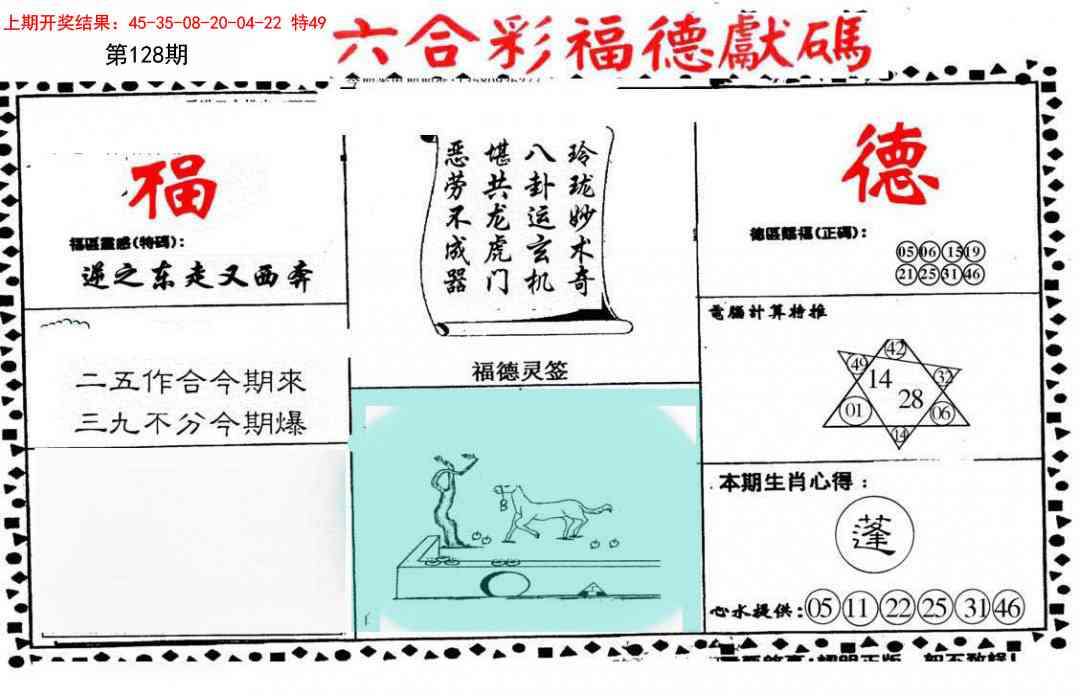 上期开奖结果：45-35-08-20-04-22 特49
第128期
六合彩福德獻碼
福
福區靈感(特碼)：
逆之东走又西奔
二五作合今期來
三九不分今期爆
玲珑妙术奇
八卦运玄机
堪共龙虎门
恶劳不成器
福德灵签
德
德區賜福(正碼)：
05 06 15 19
21 25 31 46
電腦計算特推
42
49 32
14 28
01 06
14
本期生肖心得：
蓬
心水提供：05 11 22 25 31 46